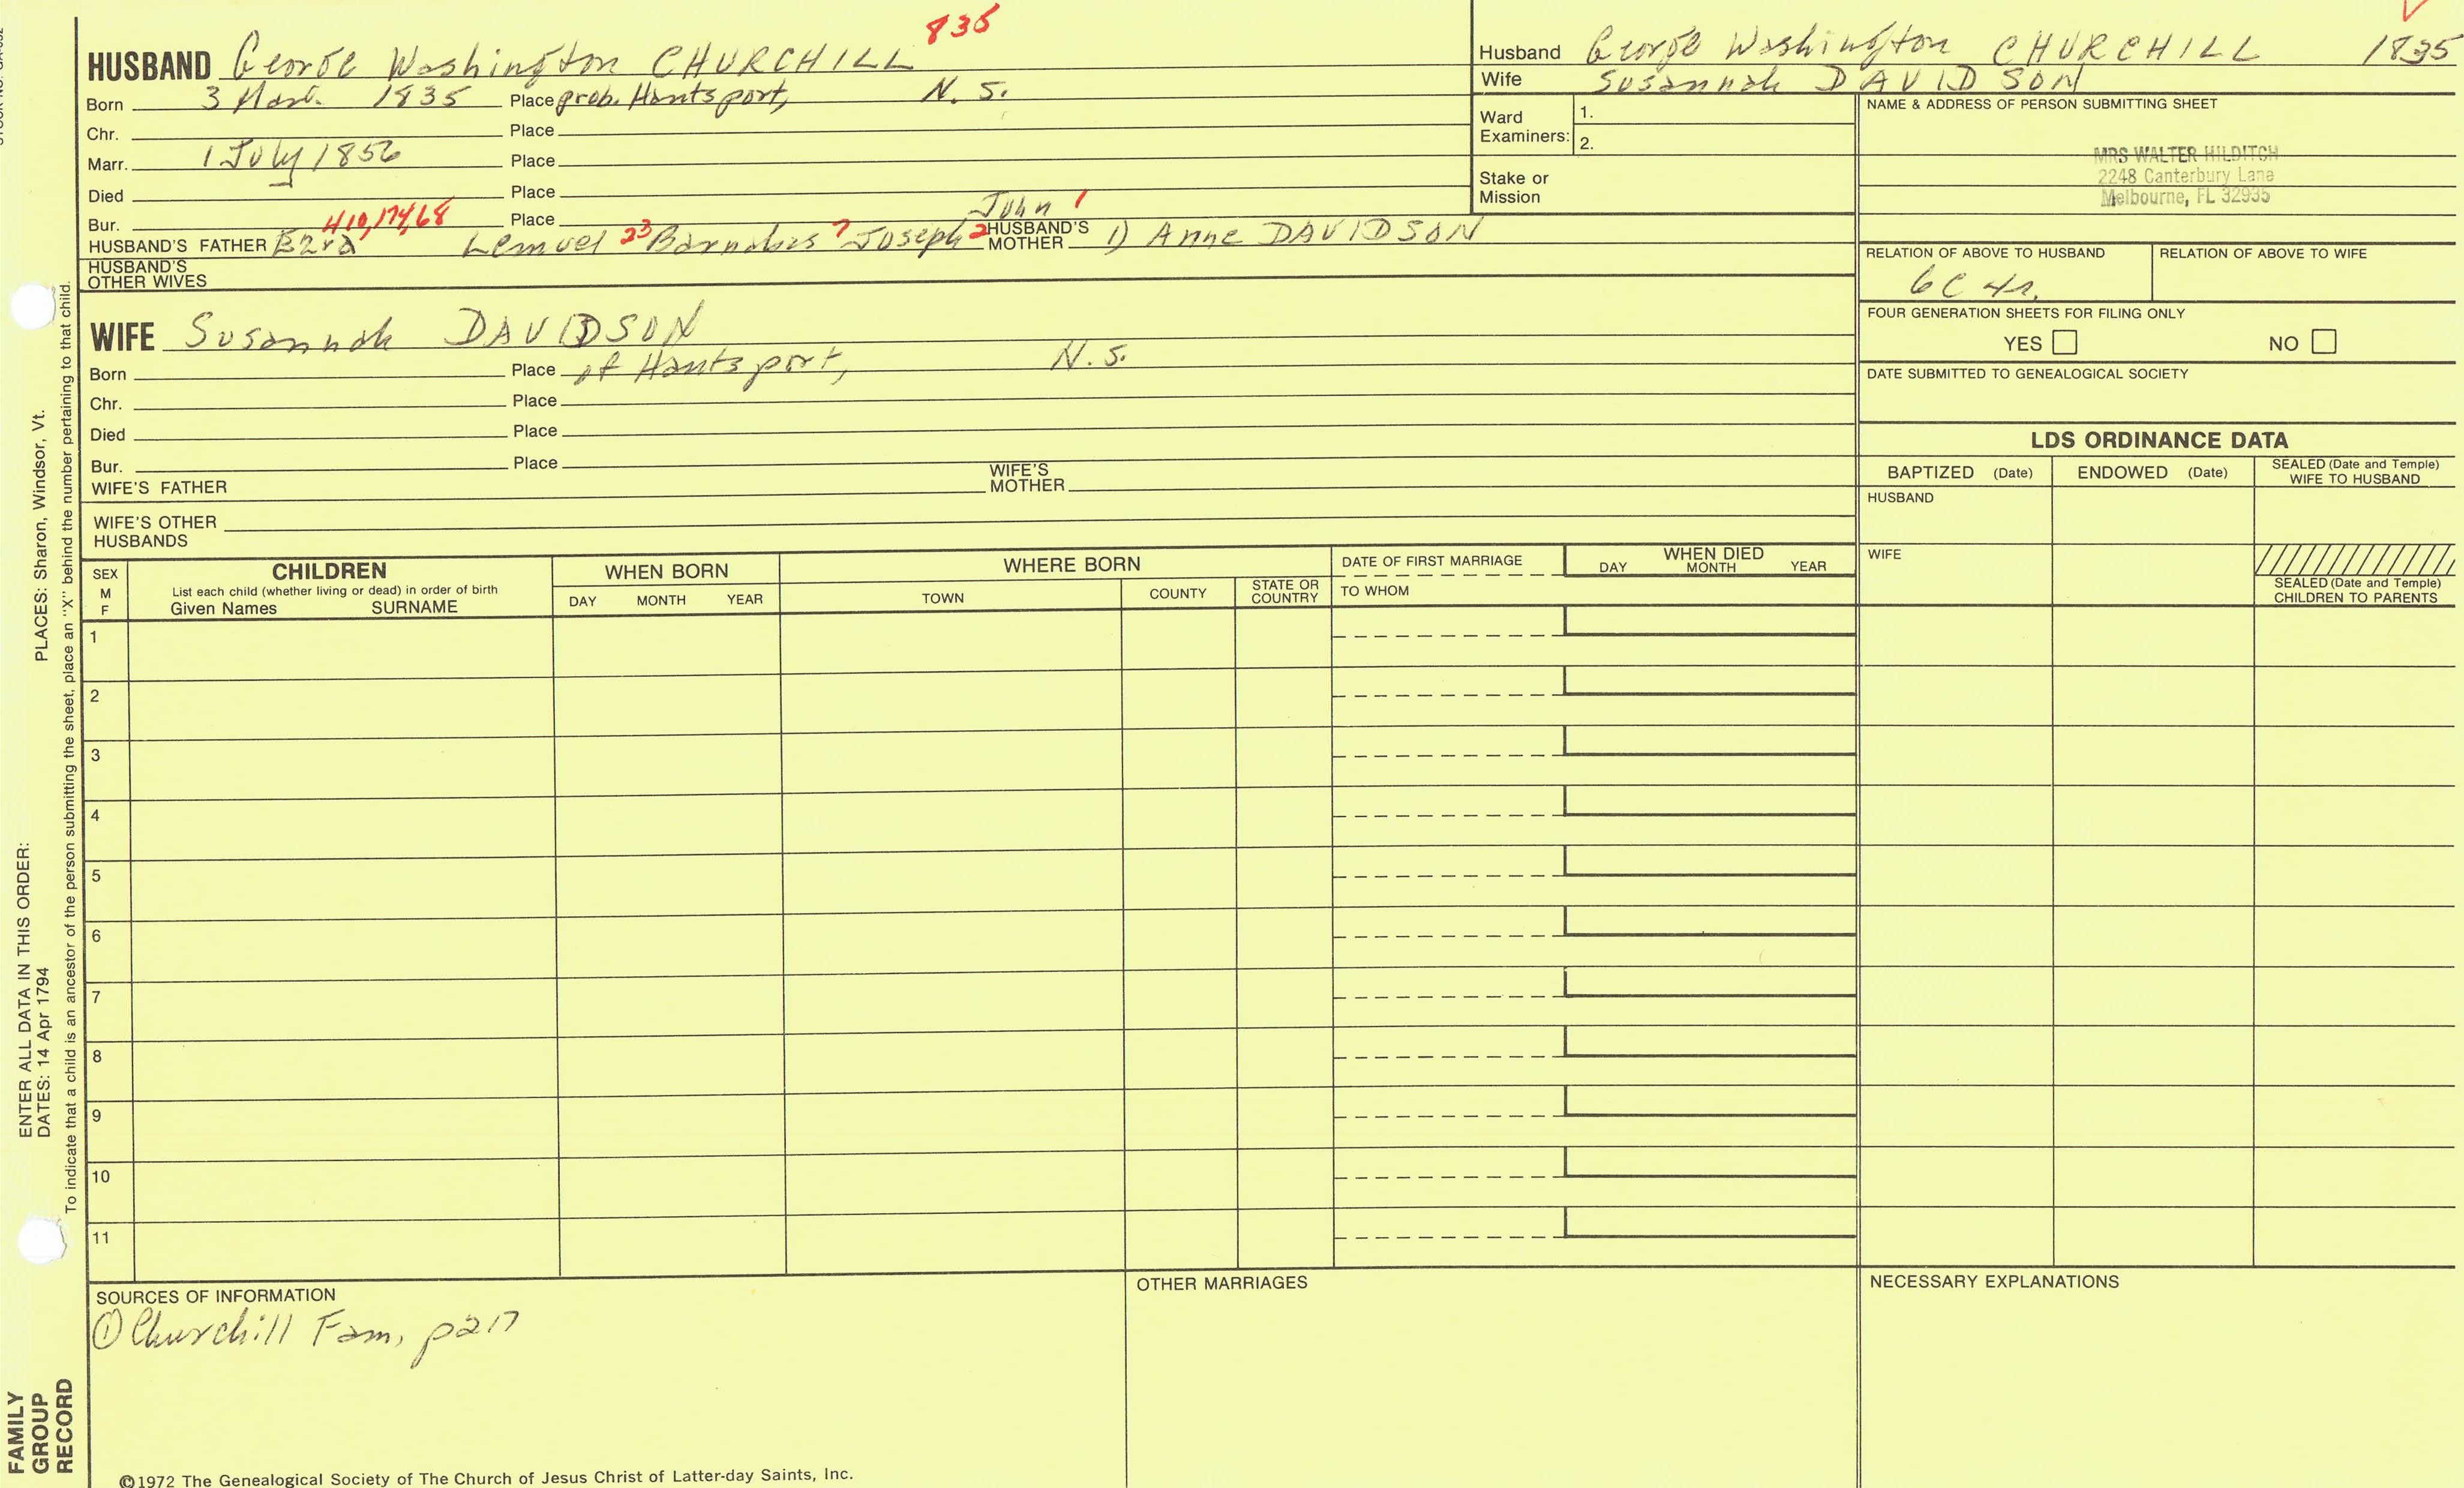 835
HUSBAND George Washington CHURCHILL
Born 3 Mar. 1835 Place prob. Hantsport, N. S.
Chr. Place
Marr. 1 July 1856 Place
Died Place
Bur. Place
410,174,68 John 1
HUSBAND'S FATHER Ezra Lemuel 23 Barnabas 7 Joseph 2 HUSBAND'S MOTHER 1) Anne DAVIDSON
HUSBAND'S OTHER WIVES
WIFE Susannah DAVIDSON
Born Place of Hantsport, N. S.
Chr. Place
Died Place
Bur. Place
WIFE'S FATHER WIFE'S MOTHER
WIFE'S OTHER HUSBANDS
Husband George Washington CHURCHILL 1835
Wife Susannah DAVIDSON
Ward Examiners: 1.
2.
Stake or Mission
NAME & ADDRESS OF PERSON SUBMITTING SHEET
MRS WALTER HILDITCH
2248 Canterbury Lane
Melbourne, FL 32935
RELATION OF ABOVE TO HUSBAND RELATION OF ABOVE TO WIFE
6C 4r.
FOUR GENERATION SHEETS FOR FILING ONLY
YES NO
DATE SUBMITTED TO GENEALOGICAL SOCIETY
LDS ORDINANCE DATA
BAPTIZED (Date) ENDOWED (Date) SEALED (Date and Temple) WIFE TO HUSBAND
HUSBAND
WIFE
SEALED (Date and Temple) CHILDREN TO PARENTS
SEX M F
CHILDREN
List each child (whether living or dead) in order of birth
Given Names SURNAME
WHEN BORN
DAY MONTH YEAR
WHERE BORN
TOWN COUNTY STATE OR COUNTRY
DATE OF FIRST MARRIAGE
TO WHOM
WHEN DIED
DAY MONTH YEAR
1
2
3
4
5
6
7
8
9
10
11
SOURCES OF INFORMATION
① Churchill Fam, p217
OTHER MARRIAGES
NECESSARY EXPLANATIONS
©1972 The Genealogical Society of The Church of Jesus Christ of Latter-day Saints, Inc.
FAMILY GROUP RECORD
ENTER ALL DATA IN THIS ORDER:
DATES: 14 Apr 1794 PLACES: Sharon, Windsor, Vt.
To indicate that a child is an ancestor of the person submitting the sheet, place an "X" behind the number pertaining to that child.